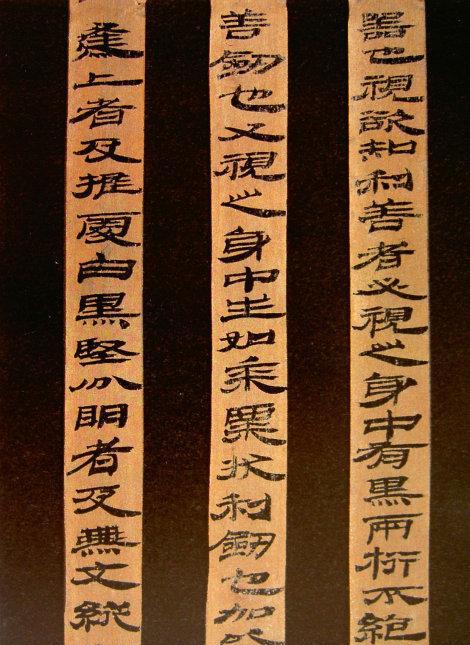 器也視欲知利善者必視之身中有黑兩桁不絕
善劒也又視之身中生如黍粟狀利劒也加以
上者及推處白黑堅分明者及無文縱